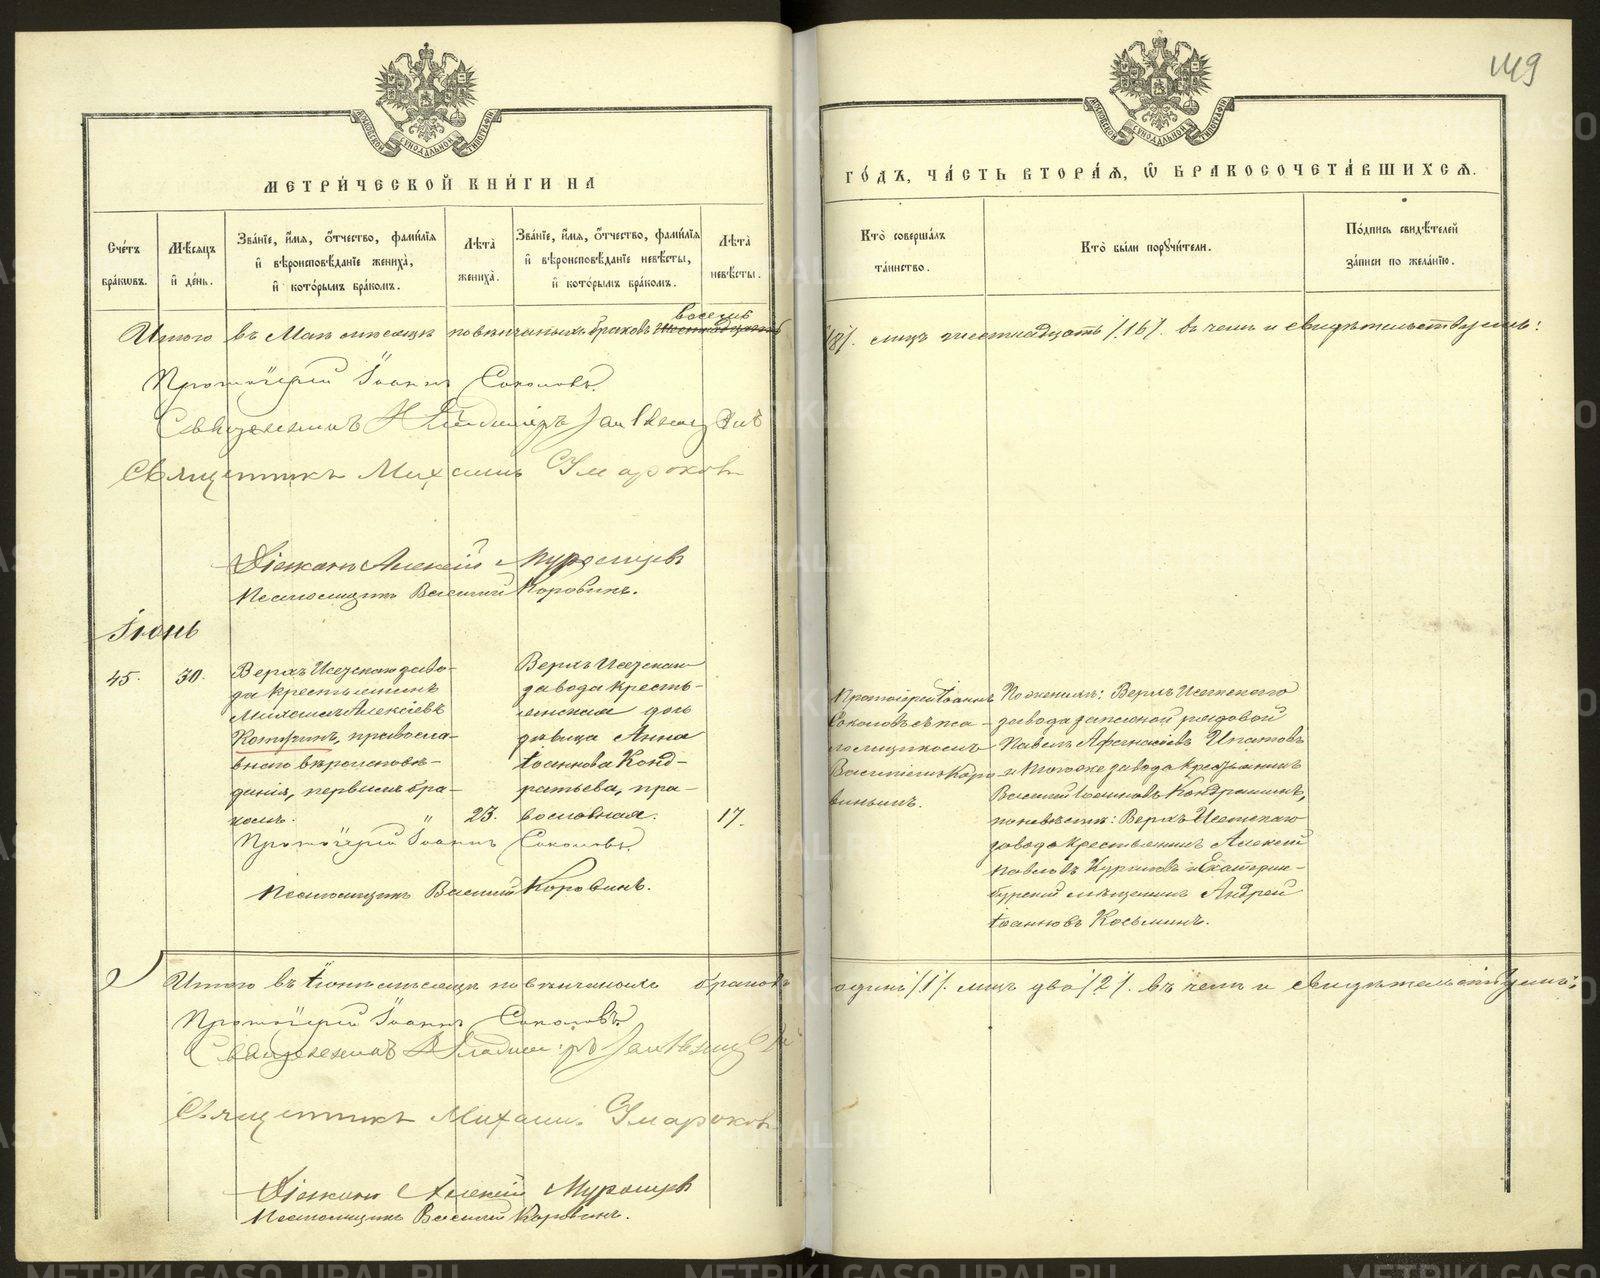 149
МОСКОВСКОЙ СУНОДАЛЬНОЙ ТИПОГРАФІИ
МОСКОВСКОЙ СУНОДАЛЬНОЙ ТИПОГРАФІИ
МЕТРИ́ЧЕСКОЙ КНИ́ГИ НА
ГО́ДЪ, ЧА́СТЬ ВТОРА́Я, Ѽ БРАКОСОЧЕТА́ВШИХСЯ.
Сче́тъ бра́кѡвъ.
Мѣ́сяцъ и҆ де́нь.
Зва́нїе, и҆́мя, ѻ҆́тчество, фами́лїя и҆ вѣроисповѣ́данїе жениха̀, и҆ кото́рымъ бра́комъ.
Лѣ́та жениха̀.
Зва́нїе, и҆́мя, ѻ҆́тчество, фами́лїя и҆ вѣроисповѣ́данїе невѣ́сты, и҆ кото́рымъ бра́комъ.
Лѣ́та невѣ́сты.
Кто̀ соверша́лъ та́инство.
Кто̀ бы́ли порꙋчи́тели.
По́дпись свидѣ́телей за́писи по жела́нїю.
восемь
Итого въ Маѣ мѣсяцѣ повѣнчаныхъ браковъ шестнадцать /8/. лицъ шестнадцать /16/. въ чемъ и свидѣтельствуемъ:
Протоіерей Іоаннъ Соколовъ.
Священникъ Владиміръ
Священникъ Михаилъ
Діаконъ Алексій Муромцев
Псаломщикъ Василій Коровинъ.
Іюнь
45.
30.
Верхъ Исетскаго заво-
да крестьянинъ
Михаилъ Алексіевъ
Котугинъ, правосла-
внаго вѣроисповѣ-
данія, первымъ бра-
комъ.
23.
Верхъ Исетскаго
завода кресть-
янская дочь
дѣвица Анна
Іоаннова Конд-
ратьева, пра-
вославная.
17.
Протоіерей Іоаннъ
Соколовъ съ пса-
ломщикомъ
Василіемъ Коро-
винымъ.
По женихѣ: Верхъ Исетскаго
завода запасной рядовой
Павелъ Афанасіевъ Ипатовъ
и того же завода крестьянинъ
Василій Іоанновъ Кондрашинъ,
по невѣстѣ: Верхъ Исетскаго
завода крестьянинъ Алексій
Павловъ и Екатерин-
бургскій мѣщанинъ Андрей
Іоанновъ Косьминъ.
Протоіерей Іоаннъ Соколовъ.
Псаломщикъ Василій Коровинъ.
Итого въ Іюнѣ мѣсяцѣ повѣнчаныхъ браковъ одинъ /1/. лицъ два /2/. въ чемъ и свидѣтельствуемъ:
Протоіерей Іоаннъ Соколовъ.
Священникъ Владиміръ
Священникъ Михаилъ
Діаконъ Алексій Муромцев
Псаломщикъ Василій Коровинъ.
METRIKI.GASO-URAL.RU